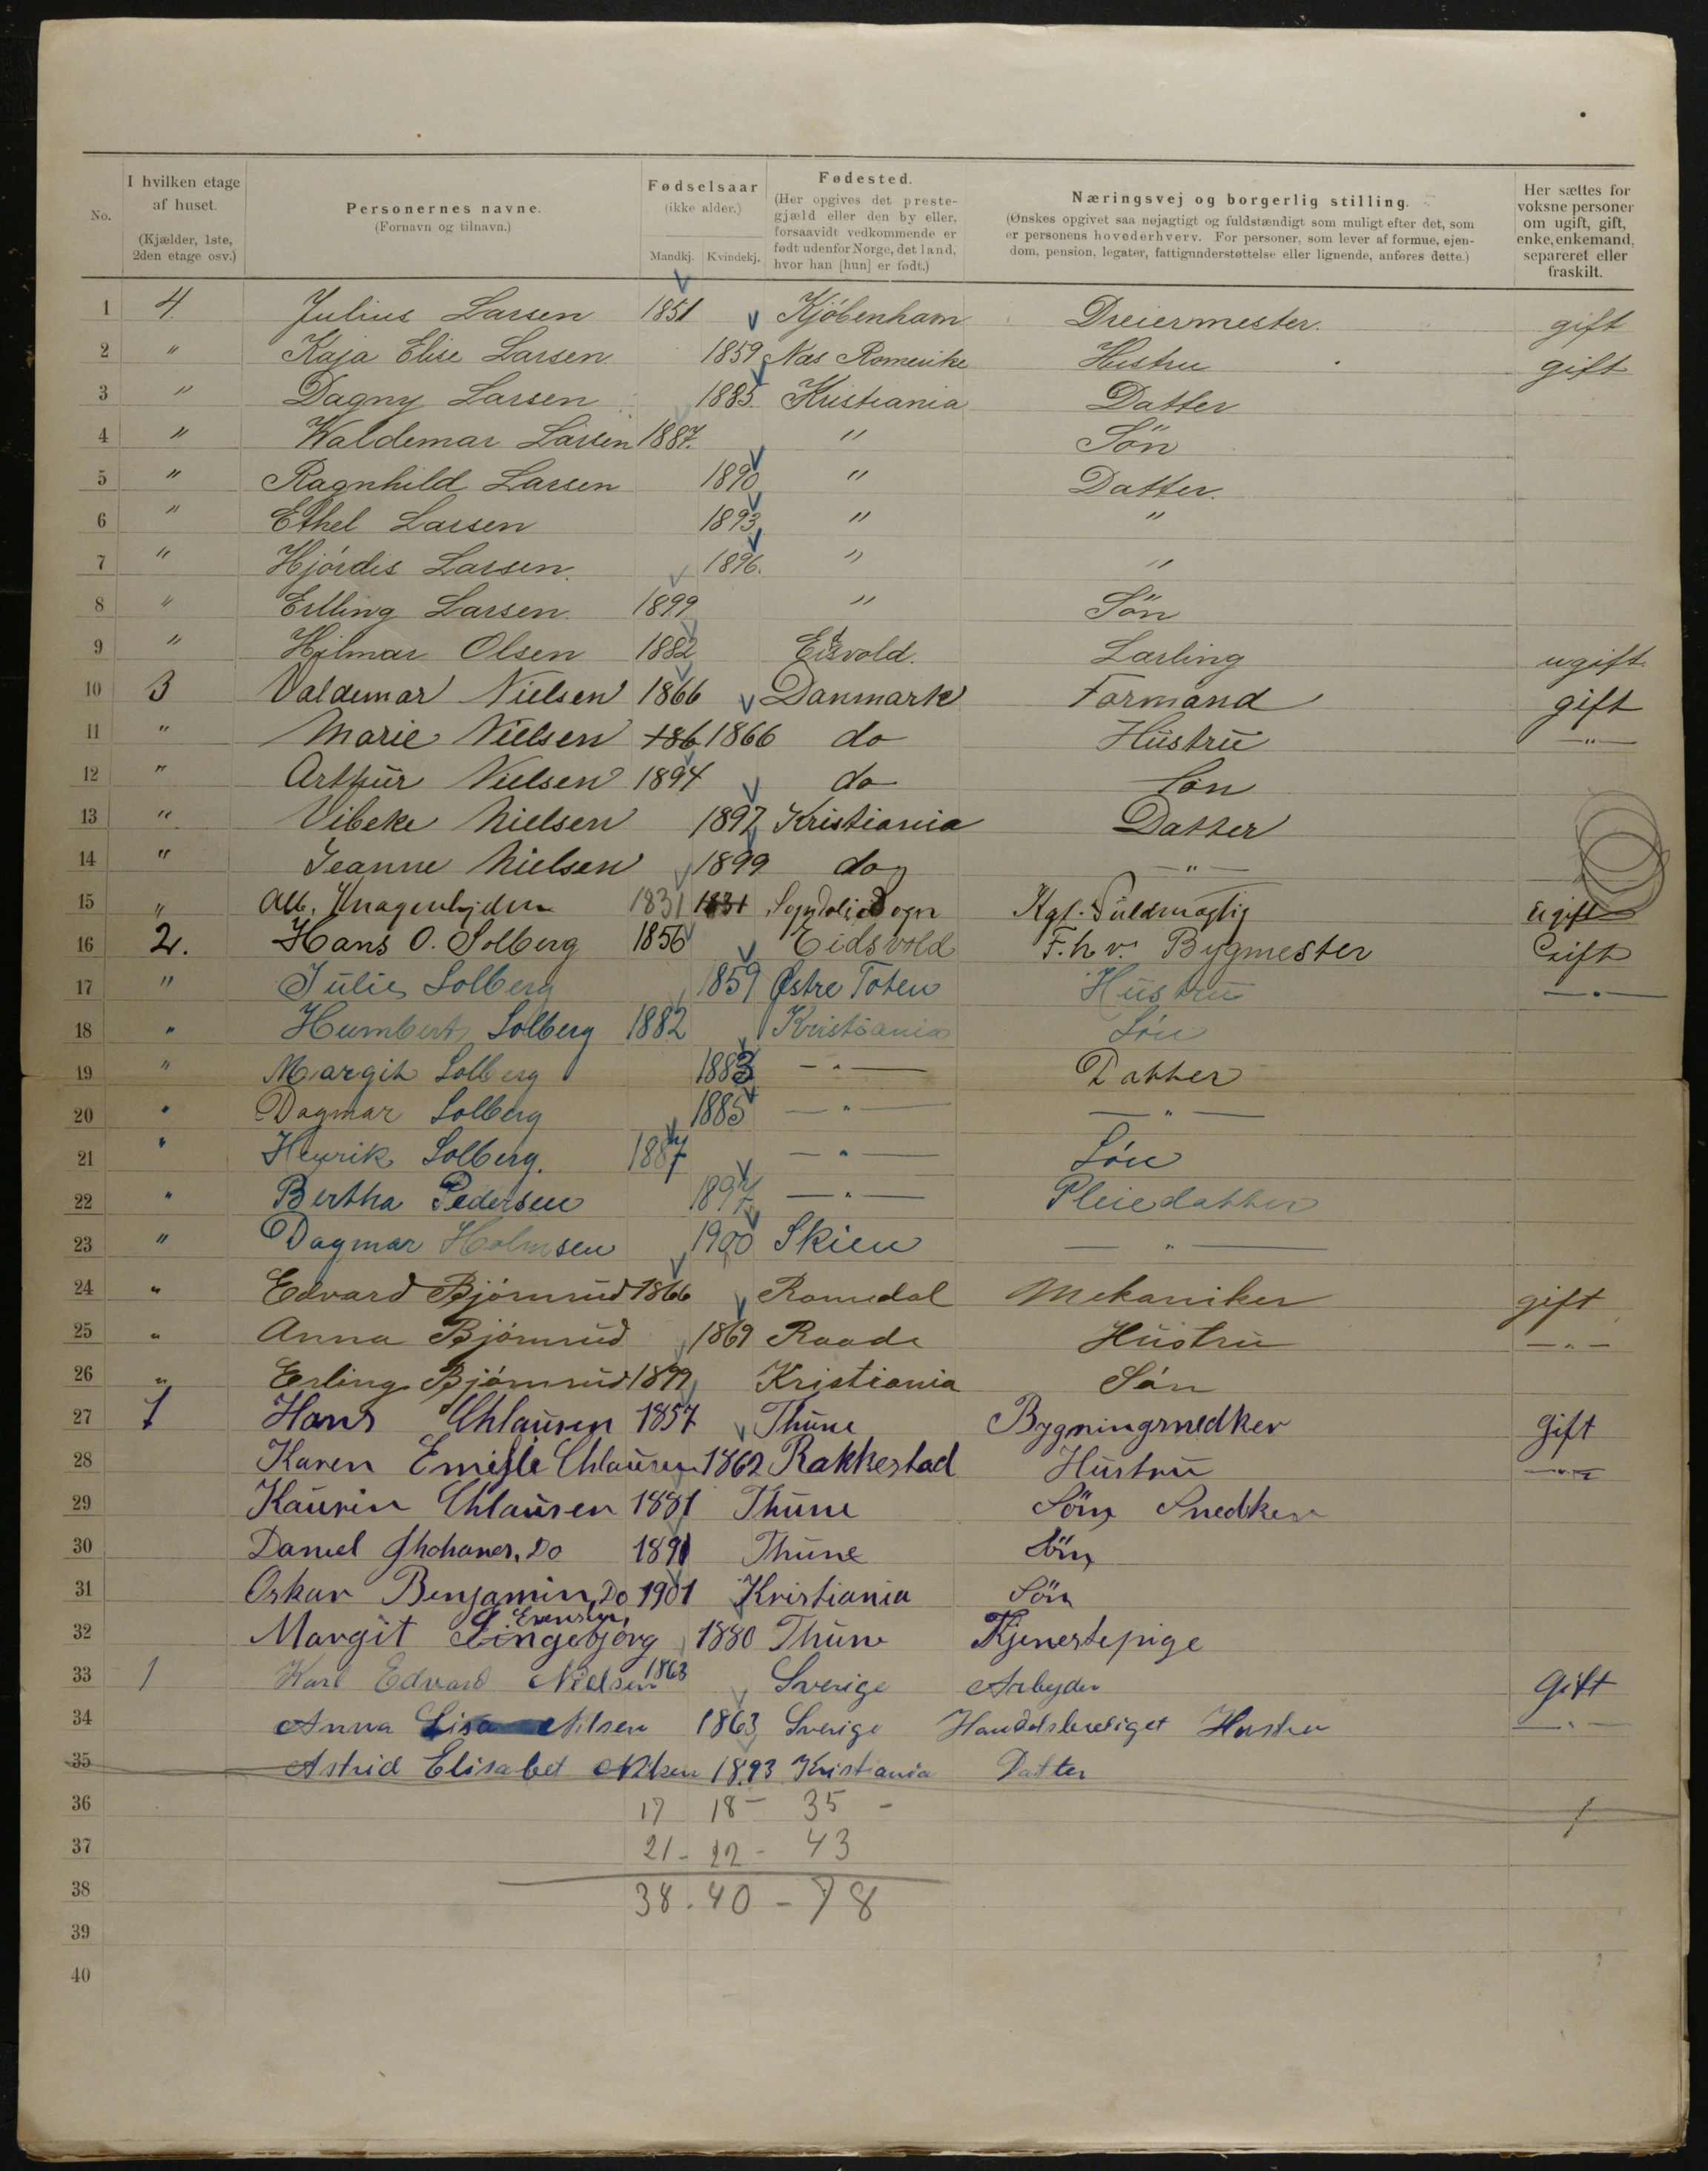 No.
I hvilken etage af huset. (Kjælder, 1ste, 2den etage osv.)
Personernes navne. (Fornavn og tilnavn.)
Fødselsaar (ikke alder.) Mandkj. Kvindekj.
Fødested. (Her opgives det prestegjæld eller den by eller, forsaavidt vedkommende er født udenfor Norge, det land, hvor han [hun] er født.)
Næringsvej og borgerlig stilling. (Ønskes opgivet saa nøjagtigt og fuldstændigt som muligt efter det, som er personens hovederhverv. For personer, som lever af formue, ejendom, pension, legater, fattigunderstøttelse eller lignende, anføres dette.)
Her sættes for voksne personer om ugift, gift, enke, enkemand, separeret eller fraskilt.
1 4. Julius Larsen 1851 Kjöbenhavn Dreiermester. gift
2 " Kaja Elise Larsen 1859 Nas Romerike Hustru gift
3 " Dagny Larsen 1885. Kristiania Datter
4 " Waldemar Larsen 1887. " Sön
5 " Ragnhild Larsen 1890 " Datter.
6 " Ethel Larsen 1893 " "
7 " Hjördis Larsen. 1896. " "
8 " Erlling Larsen. 1899 " Sön
9 " Hilmar Olsen 1882 Eidsvold. Lærling ugift
10 3 Valdemar Nielsen 1866 Danmark Formand gift
11 " Marie Nielsen 186 1866 do Hustru —"—
12 " Arthur Nielsen 1894 do Søn
13 " Vibeke Nielsen 1897 Kristiania Datter
14 " Jeanne Nielsen 1899 do —"—
15 " Alb. 1831 1831 Kgl. Fuldmægtig ugift
16 2. Hans O. Solberg 1856 Eidsvold F.h.v. Bygmester Gift
17 " Julie Solberg 1859 Østre Toten Hustru —"—
18 " Humbert Solberg 1882 Kristiania Søn
19 " Margit Solberg 1883 —"— Datter
20 " Dagmar Solberg 1885 —"— —"—
21 " Henrik Solberg. 1887 —"— Søn
22 " Bertha Pedersen 1897 —"— Pleiedatter
23 " Dagmar Holmsen 1900 Skien —"—
24 " Edvard Bjørnrud 1866 Romedal Mekaniker gift
25 " Anna Bjørnrud 1869 Raade Hustru —"—
26 " Erling Bjørnrud 1899 Kristiania Søn
27 1 Hans Chlausen 1857 Thune Bygningsnedker gift
28 Karen Emilie Chlausen 1862 Rakkestad Hustru —"—
29 Kaurin Chlausen 1881 Thune Sön Snedker
30 Daniel Ghohanes, Do 1891 Thune Sön
31 Oskar Benjamin, Do 1901 Kristiania Sön
32 Margit Ingebjørg Evensen, 1880 Thune Tjenestepige
33 1 Karl Edvard Nielsen 1863 Sverige Arbeyder Gift
34 Anna Lisa Nilsen 1863 Sverige Handelsberetiget Hustru —"—
35 Astrid Elisabet Nilsen 1893 Kristiania Datter
36 17 18 - 35 -
37 21 - 22 - 43
38 38. 40 - 78
39
40